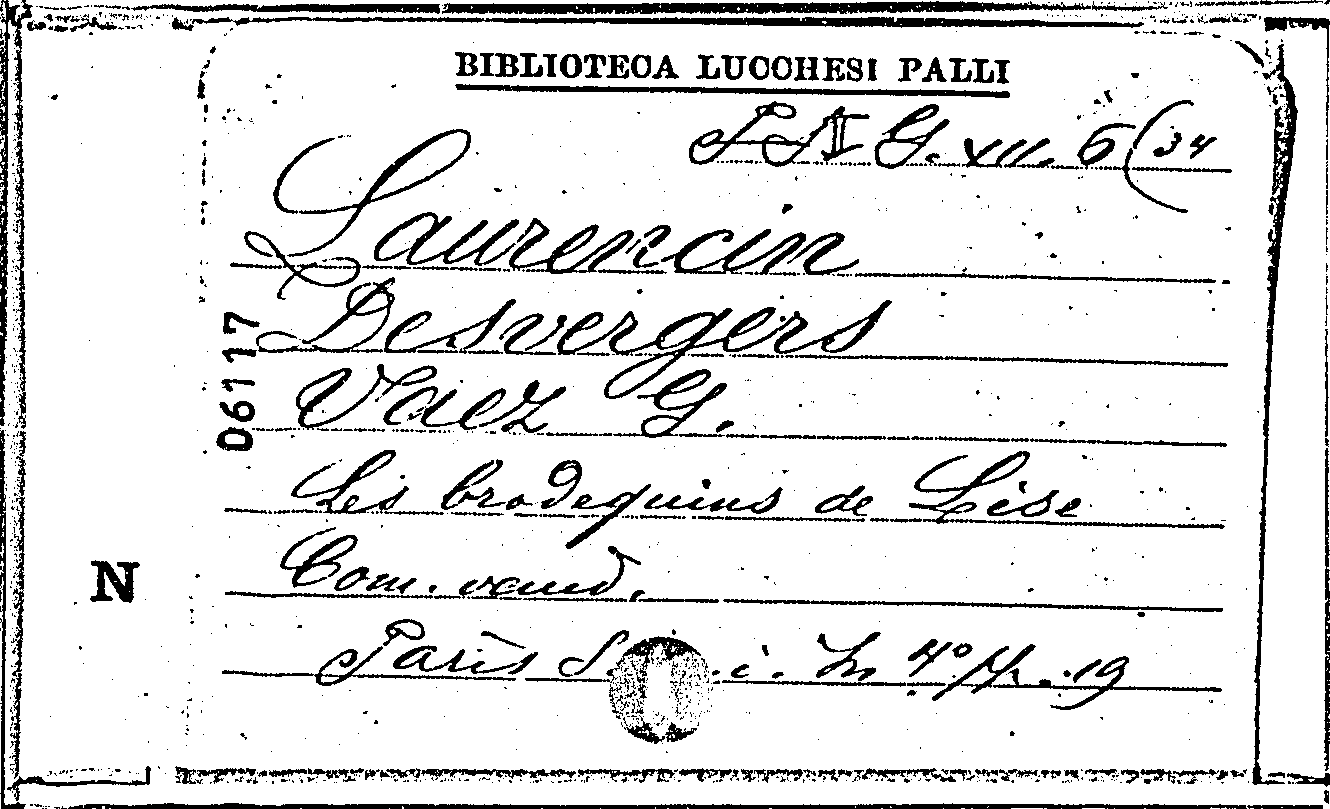 BIBLIOTECA LUCCHESI PALLI
G. XII. 6 (34
Laurencin
Desvergers
Vaez G.
06117
Les brodequins de Lise
Com. vaud.
N
Paris S. i. In 4º p. 19